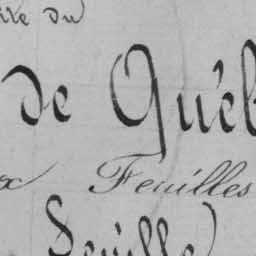 ire du
de Québ
x Feuilles
Seuille)